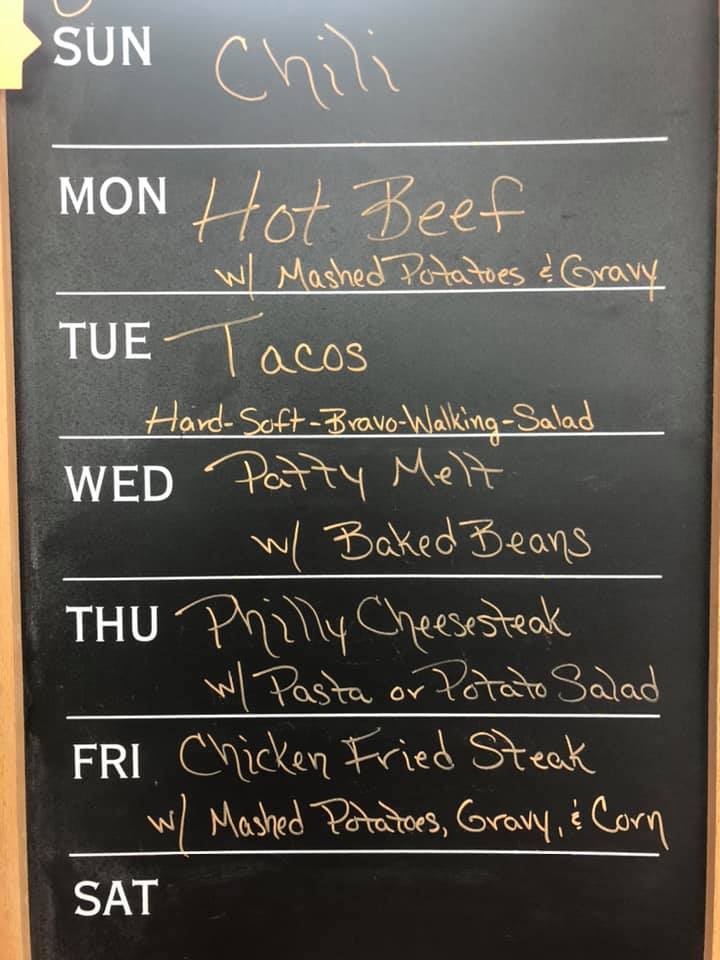 SUN Chili
MON Hot Beef
w/ Mashed Potatoes & Gravy
TUE Tacos
Hard-Soft-Bravo-Walking-Salad
WED Patty Melt
w/ Baked Beans
THU Philly Cheesesteak
w/ Pasta or Potato Salad
FRI Chicken Fried Steak
w/ Mashed Potatoes, Gravy, & Corn
SAT